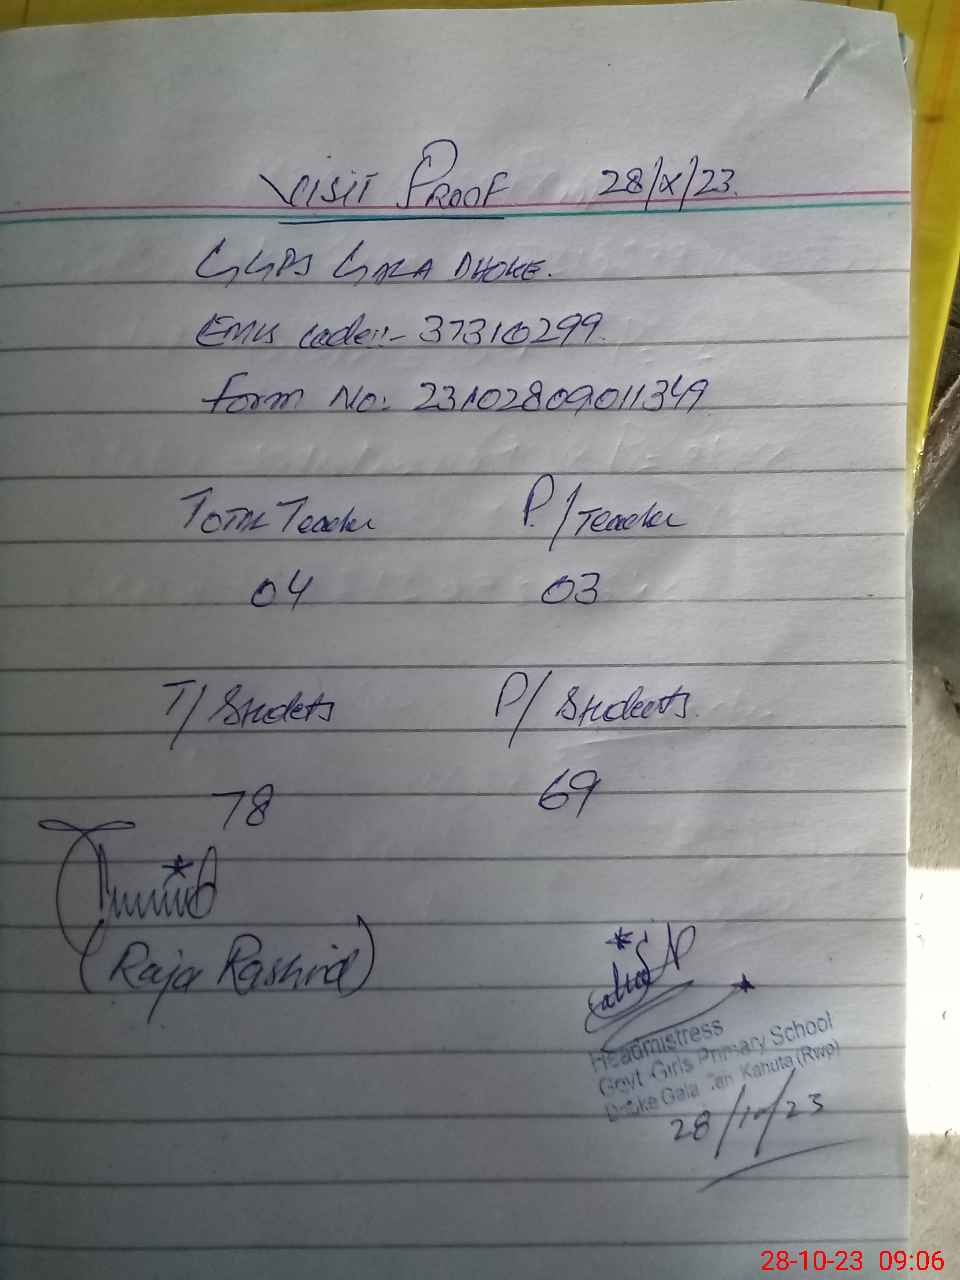 VISIT PROOF 28/X/23.
GGPS GALA DHOKE.
EMIS code:- 37310299.
Form No: 23102809011349
Total Teacher P./Teacher
04 03
T/Students P/Students.
78 69
(Raja Rashid)
Headmistress
Govt Girls Primary School
Dhoke Gala Teh Kahuta (Rwp)
28/10/23
28-10-23 09:06